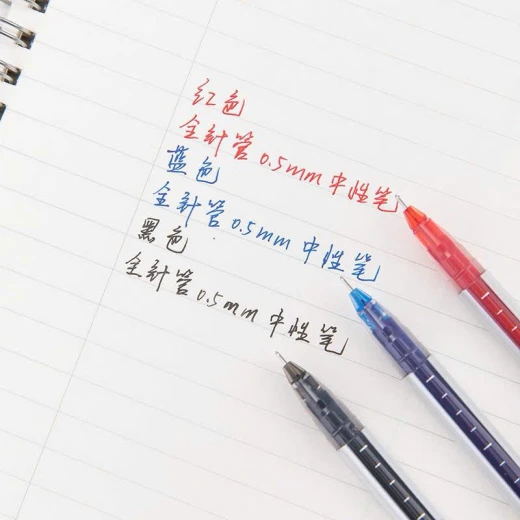 红色
全针管0.5mm中性笔
蓝色
全针管0.5mm中性笔
黑色
全针管0.5mm中性笔